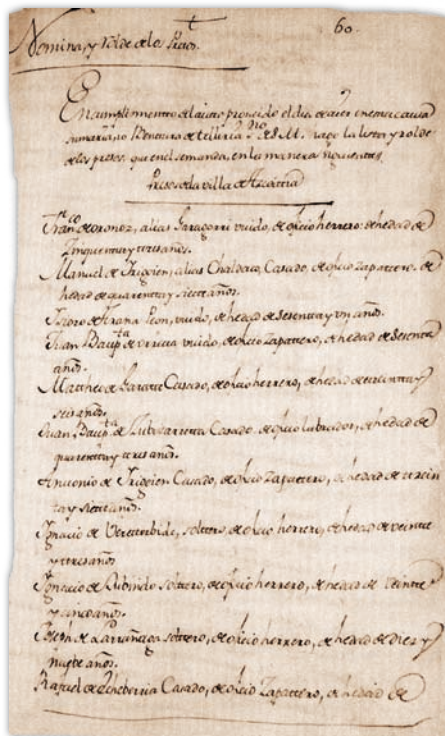 60.
Nomina, y rolde de los Presos.
En cumplimientto del autto proveido el dia de ayer en esta caussa
sumaria, io Benttura de telleria ss.no de S. M. hago la listta y rolde
de los presos, que en el se manda, en la manera siguientte.
Presos de la villa de Azcoittia
Fran.co de oronoz, alias Garagorri viudo, de oficio herrero: de hedad de
Zinquentta y tres años.
Manuel de Irigoien, alias Chaldaco, Casado, de oficio zapattero, de
hedad de quarentta y siette años.
Isidro de Arana Leon, viudo, de hedad de sesentta y un años.
Juan Baup.ta de urrutia viudo, de oficio zapattero, de hedad de setentta
años.
Mattheo de Garatte Casado, de oficio herrero, de hedad de treintta y
seis años.
Juan Baup.ta de Aubizarretta Casado, de oficio labrador, de hedad de
quarentta y tres años.
Antonio de Irigoien Casado, de oficio Zapattero, de hedad de trein
tta y siette años.
Ignacio de Veretterbide, solttero, de oficio herrero, de hedad de veintte
y tres años
Ignacio de solttero, de oficio herrero, de hedad de veintte
y cinco años.
Joseph de Larrañaga solttero, de oficio herrero, de hedad de diez y
nuebe años.
Rafael de Echeberria Casado, de oficio Zapattero, de hedad de